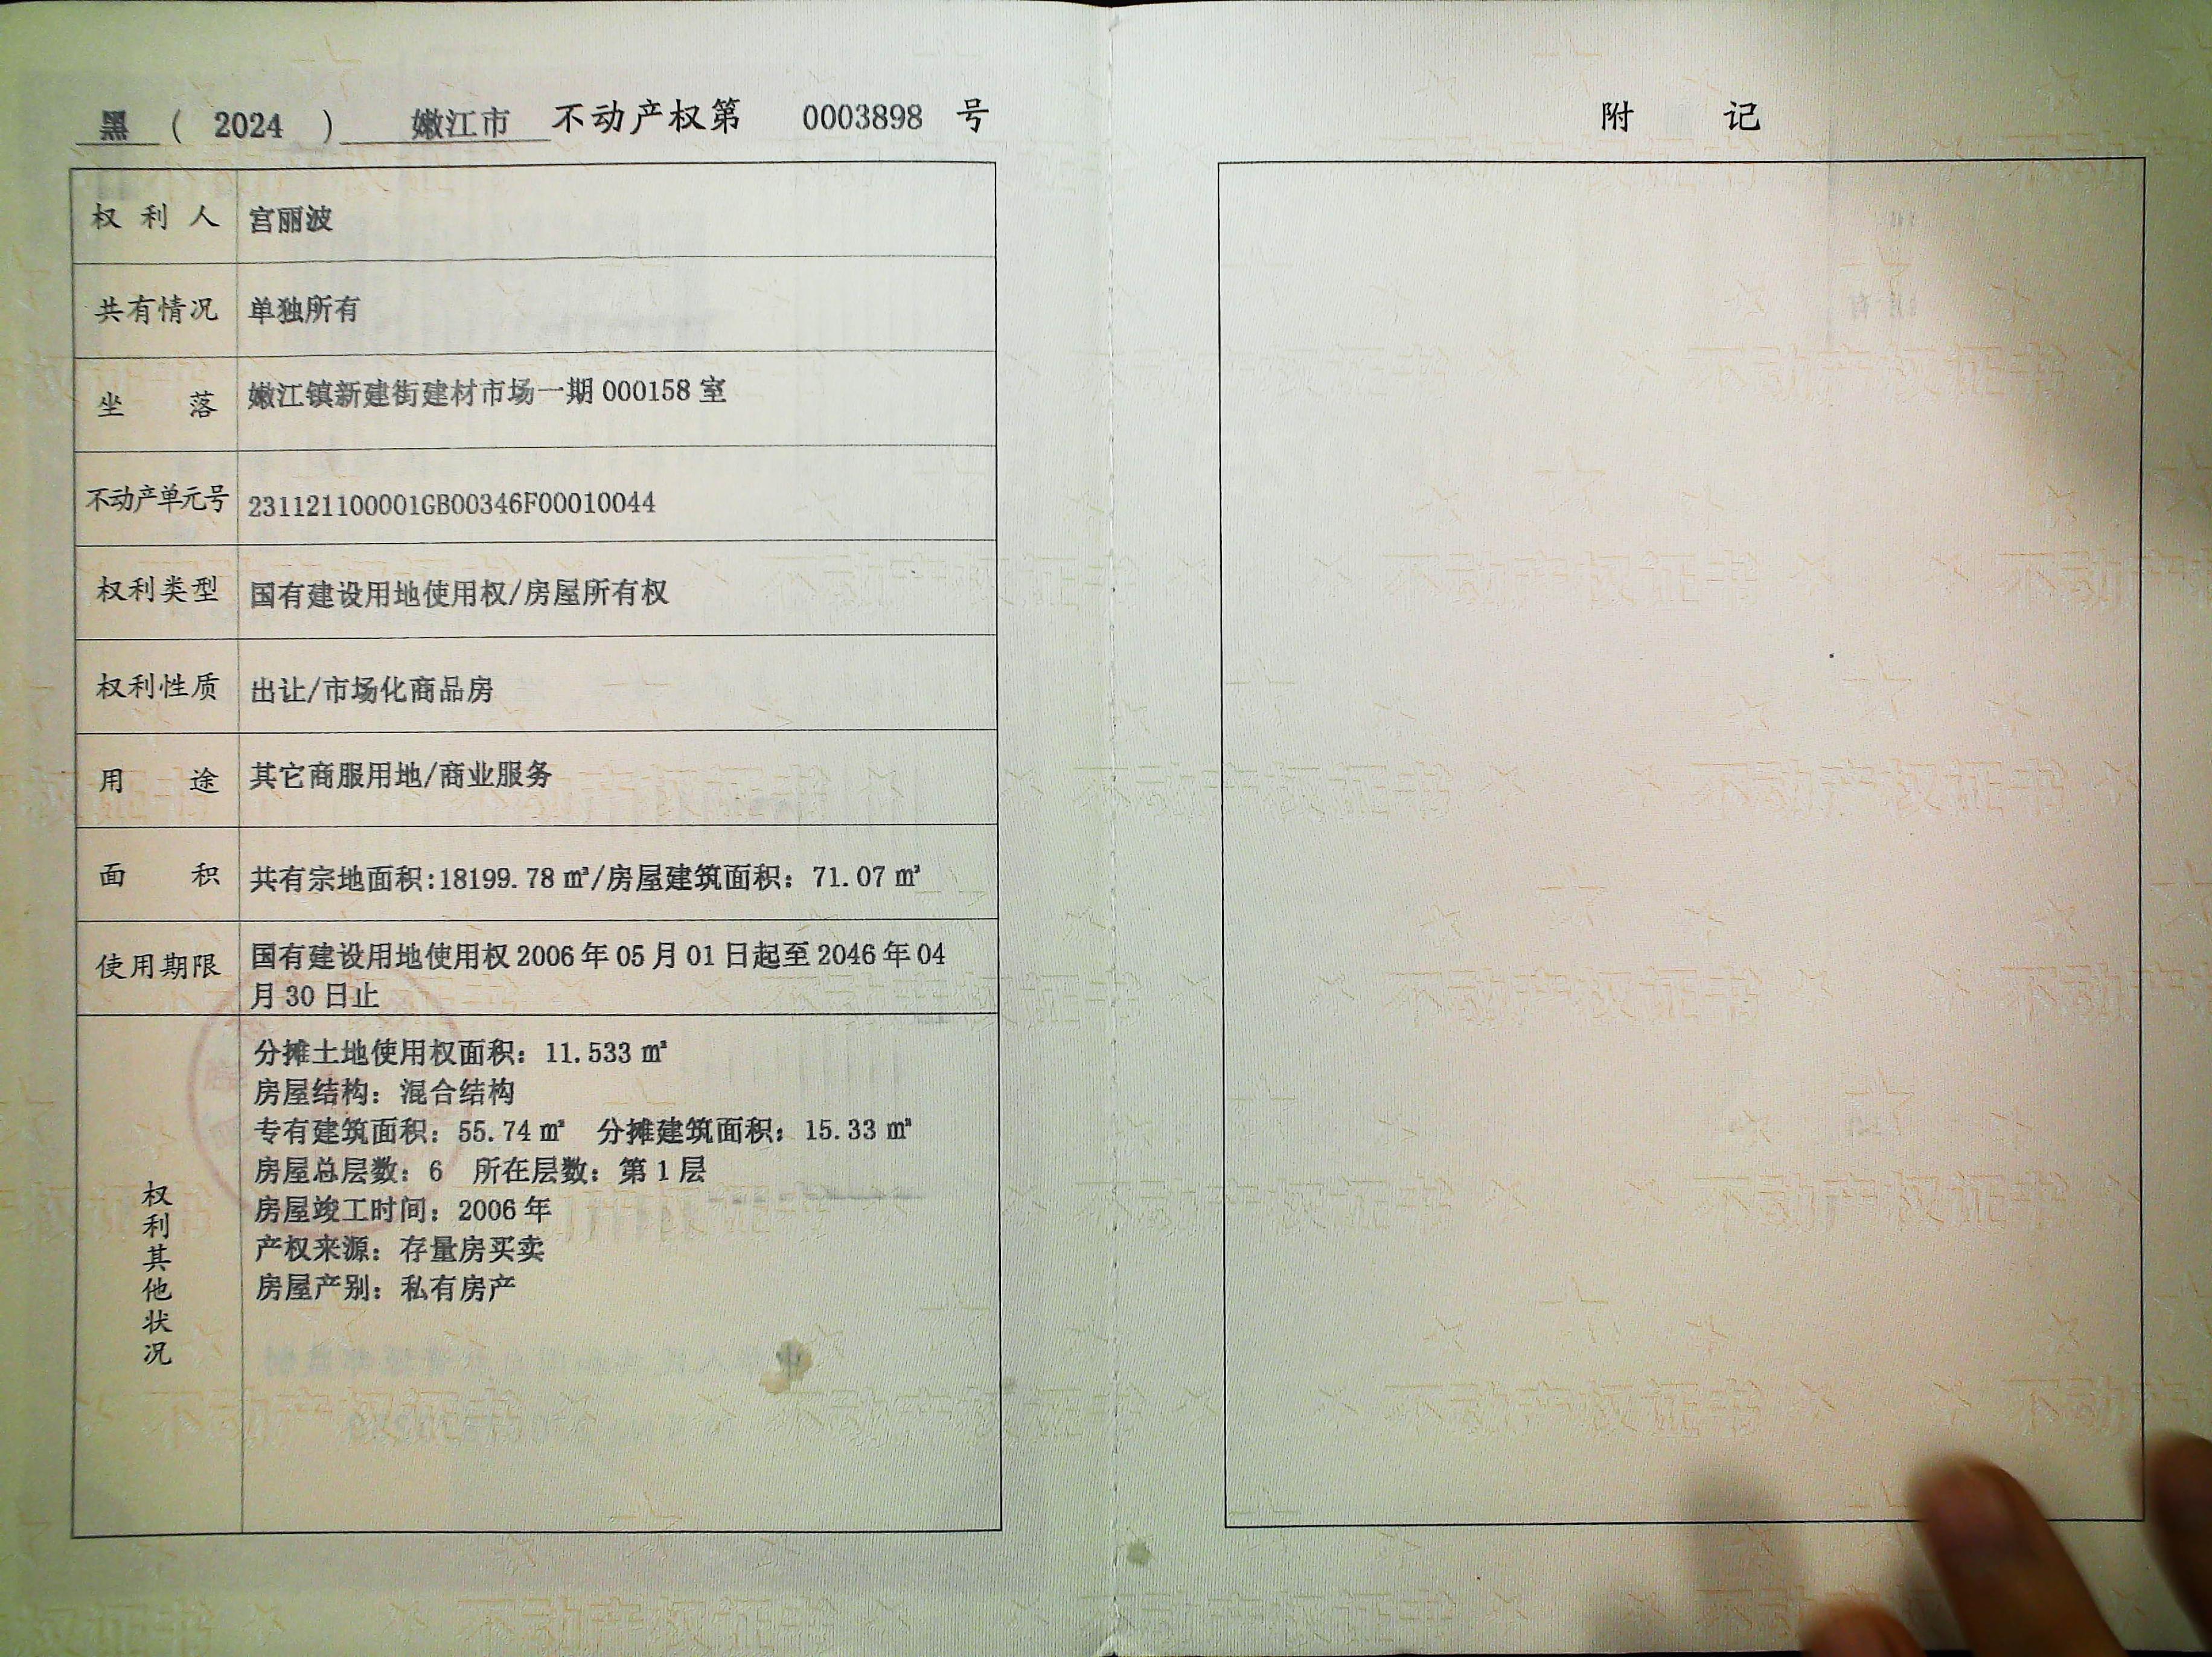 黑 ( 2024 ) 嫩江市 不动产权第 0003898 号
权利人 宫丽波
共有情况 单独所有
坐落 嫩江镇新建街建材市场一期000158室
不动产单元号 231121100001GB00346F00010044
权利类型 国有建设用地使用权/房屋所有权
权利性质 出让/市场化商品房
用途 其它商服用地/商业服务
面积 共有宗地面积:18199.78㎡/房屋建筑面积：71.07㎡
使用期限 国有建设用地使用权2006年05月01日起至2046年04
月30日止
权利其他状况
分摊土地使用权面积：11.533㎡
房屋结构：混合结构
专有建筑面积：55.74㎡ 分摊建筑面积：15.33㎡
房屋总层数：6 所在层数：第1层
房屋竣工时间：2006年
产权来源：存量房买卖
房屋产别：私有房产
附记